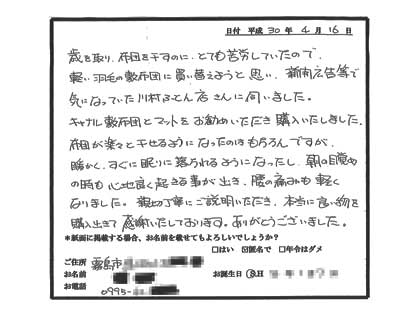 日付 平成 30 年 4 月 16 日
歳を取り、布団を干すのに、とても苦労していたので、
軽い羽毛の敷布団に買い替えようと思い、新聞広告等で
気になっていた川村ふとん店さんに伺いました。
キャメル敷布団とマットをお勧めいただき購入いたしました。
布団が楽々と干せるようになったのはもちろんですが、
暖かく、すぐに眠りに落られるようになったし、朝の目覚め
の時も心地良く起きる事が出き、腰の痛みも軽く
なりました。親切丁寧にご説明いただき、本当に良い物を
購入出きて感謝いたしております。ありがとうございました。
*紙面に掲載する場合、お名前を載せてもよろしいでしょうか?
□はい ☑匿名で □年令はダメ
ご住所 霧島市
お名前 お誕生日
お電話 0995-